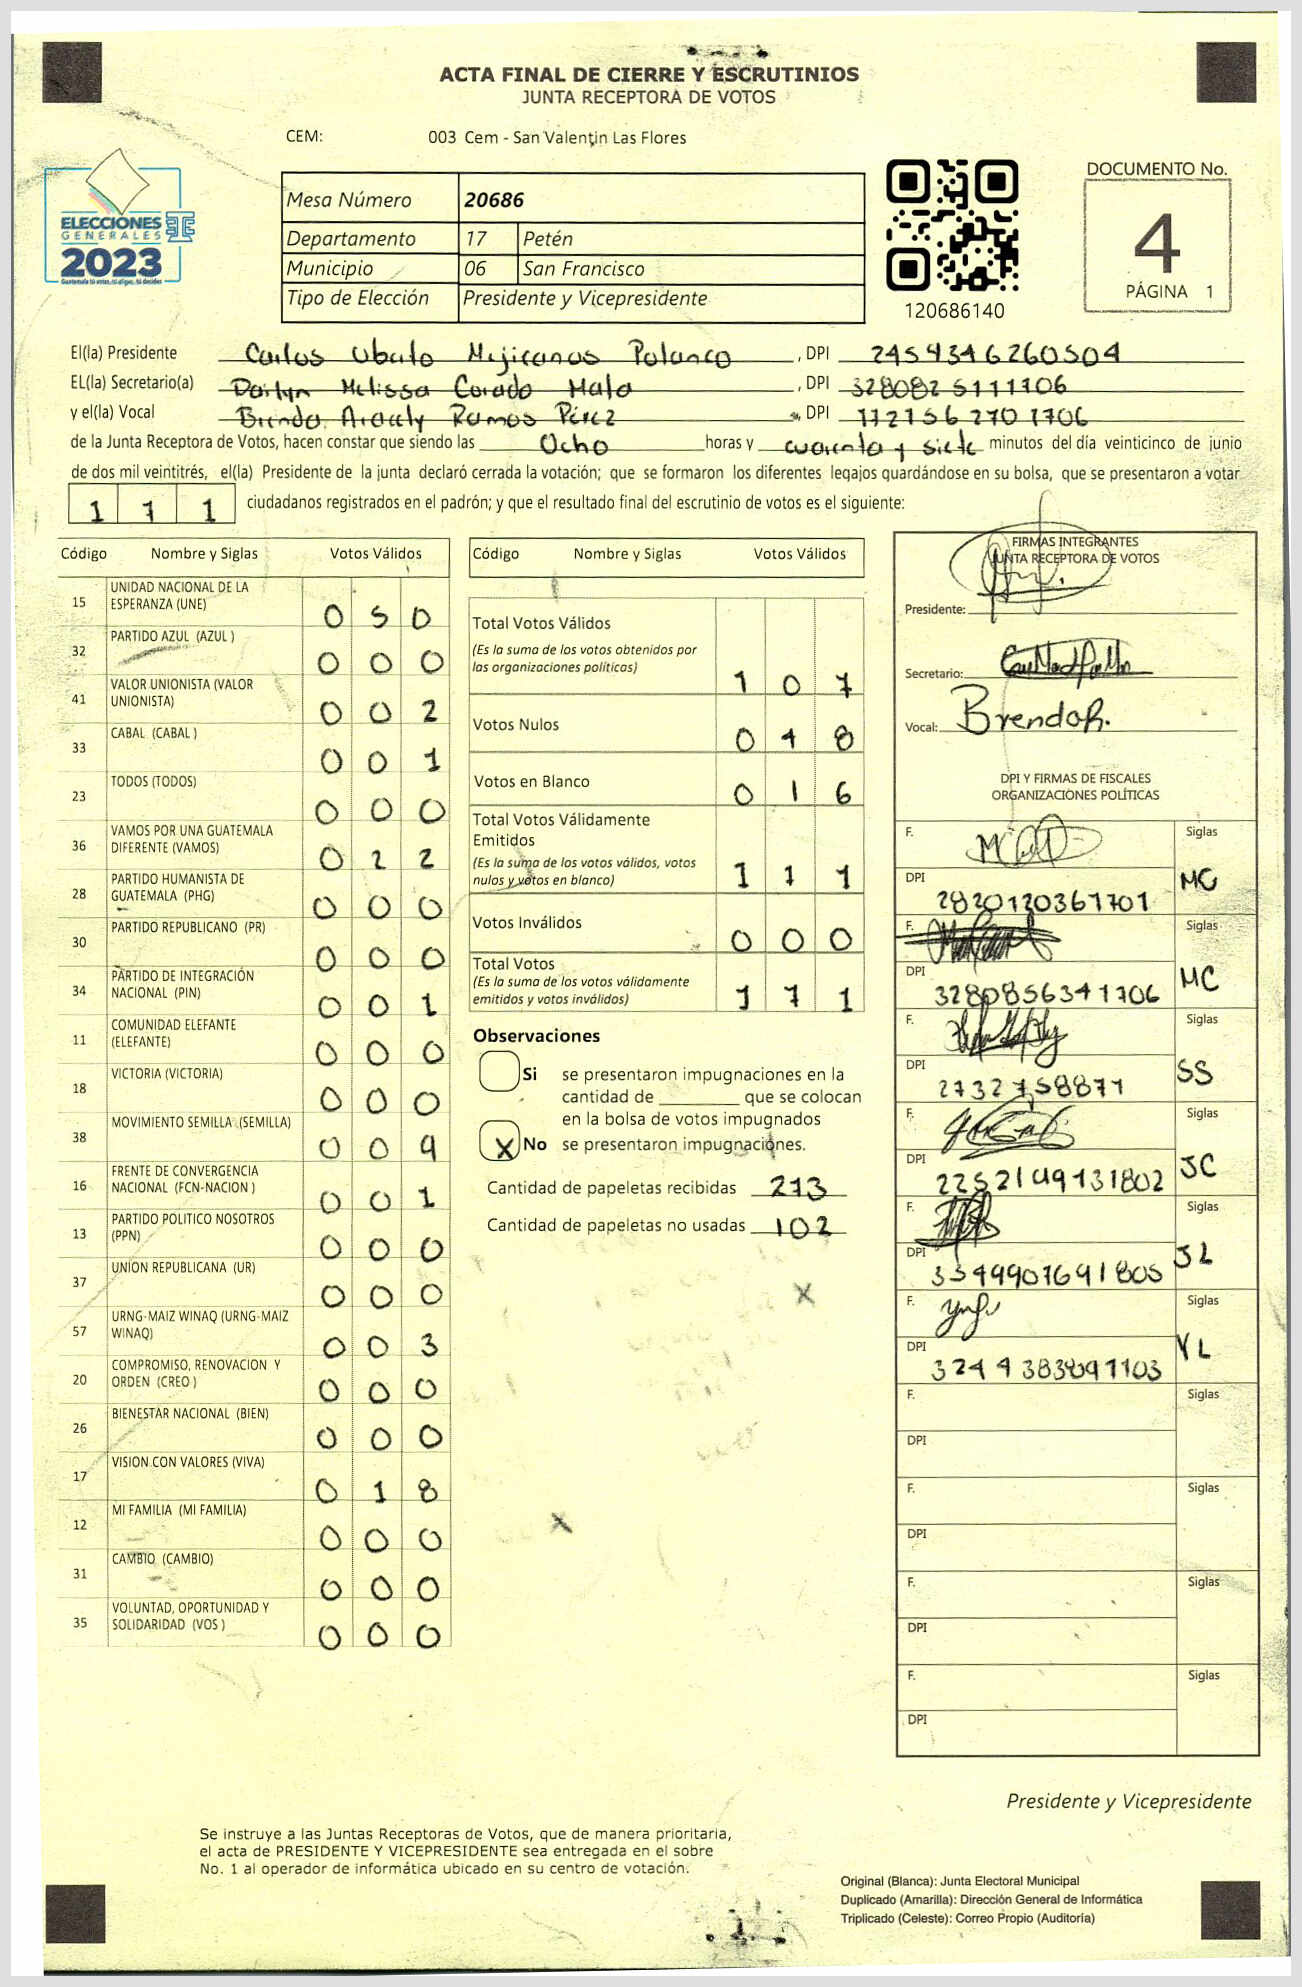 ACTA FINAL DE CIERRE Y ESCRUTINIOS
JUNTA RECEPTORA DE VOTOS
CEM: 003 Cem - San Valentin Las Flores
ELECCIONES
GENERALES
2023
Guatemala tú votas, tú eliges, tú decides
Mesa Número 20686
Departamento 17 Petén
Municipio 06 San Francisco
Tipo de Elección Presidente y Vicepresidente
120686140
DOCUMENTO No.
4
PÁGINA 1
El(la) Presidente Carlos Ubaldo Mejicanos Polanco, DPI 2454346260504
EL(la) Secretario(a) Darlyn Melissa Corado Mata, DPI 3280825111706
y el(la) Vocal Brenda Aracely Ramos Pérez, DPI 1721562701706
de la Junta Receptora de Votos, hacen constar que siendo las Ocho horas y cuarenta y siete minutos del día veinticinco de junio
de dos mil veintitrés, el(la) Presidente de la junta declaró cerrada la votación; que se formaron los diferentes legajos guardándose en su bolsa, que se presentaron a votar
171 ciudadanos registrados en el padrón; y que el resultado final del escrutinio de votos es el siguiente:
Código Nombre y Siglas Votos Válidos
15 UNIDAD NACIONAL DE LA
ESPERANZA (UNE) 0 5 0
32 PARTIDO AZUL (AZUL ) 0 0 0
41 VALOR UNIONISTA (VALOR
UNIONISTA) 0 0 2
33 CABAL (CABAL ) 0 0 1
23 TODOS (TODOS) 0 0 0
36 VAMOS POR UNA GUATEMALA
DIFERENTE (VAMOS) 0 2 2
28 PARTIDO HUMANISTA DE
GUATEMALA (PHG) 0 0 0
30 PARTIDO REPUBLICANO (PR) 0 0 0
34 PARTIDO DE INTEGRACIÓN
NACIONAL (PIN) 0 0 1
11 COMUNIDAD ELEFANTE
(ELEFANTE) 0 0 0
18 VICTORIA (VICTORIA) 0 0 0
38 MOVIMIENTO SEMILLA (SEMILLA) 0 0 9
16 FRENTE DE CONVERGENCIA
NACIONAL (FCN-NACION ) 0 0 1
13 PARTIDO POLITICO NOSOTROS
(PPN) 0 0 0
37 UNION REPUBLICANA (UR) 0 0 0
57 URNG-MAIZ WINAQ (URNG-MAIZ
WINAQ) 0 0 3
20 COMPROMISO, RENOVACION Y
ORDEN (CREO ) 0 0 0
26 BIENESTAR NACIONAL (BIEN) 0 0 0
17 VISION CON VALORES (VIVA) 0 1 8
12 MI FAMILIA (MI FAMILIA) 0 0 0
31 CAMBIO (CAMBIO) 0 0 0
35 VOLUNTAD, OPORTUNIDAD Y
SOLIDARIDAD (VOS ) 0 0 0
Código Nombre y Siglas Votos Válidos
Total Votos Válidos
(Es la suma de los votos obtenidos por
las organizaciones políticas) 1 0 7
Votos Nulos 0 4 8
Votos en Blanco 0 1 6
Total Votos Válidamente
Emitidos
(Es la suma de los votos válidos, votos
nulos y votos en blanco) 1 7 1
Votos Inválidos 0 0 0
Total Votos
(Es la suma de los votos válidamente
emitidos y votos inválidos) 1 7 1
Observaciones
Si se presentaron impugnaciones en la
cantidad de ________ que se colocan
en la bolsa de votos impugnados
X No se presentaron impugnaciones.
Cantidad de papeletas recibidas 273
Cantidad de papeletas no usadas 102
FIRMAS INTEGRANTES
JUNTA RECEPTORA DE VOTOS
Presidente:
Secretario:
Vocal: Brenda R.
DPI Y FIRMAS DE FISCALES
ORGANIZACIONES POLÍTICAS
F. Siglas
DPI 2820120361701 MG
F. Siglas
DPI 3280856341706 MC
F. Siglas
DPI 2732758871 SS
F. Siglas
DPI 2252149131802 JC
F. Siglas
DPI 3349901691805 JL
F. Siglas
DPI 3244383891103 YL
F. Siglas
DPI
F. Siglas
DPI
F. Siglas
DPI
F. Siglas
DPI
Presidente y Vicepresidente
Se instruye a las Juntas Receptoras de Votos, que de manera prioritaria,
el acta de PRESIDENTE Y VICEPRESIDENTE sea entregada en el sobre
No. 1 al operador de informática ubicado en su centro de votación.
Original (Blanca): Junta Electoral Municipal
Duplicado (Amarilla): Dirección General de Informática
Triplicado (Celeste): Correo Propio (Auditoría)